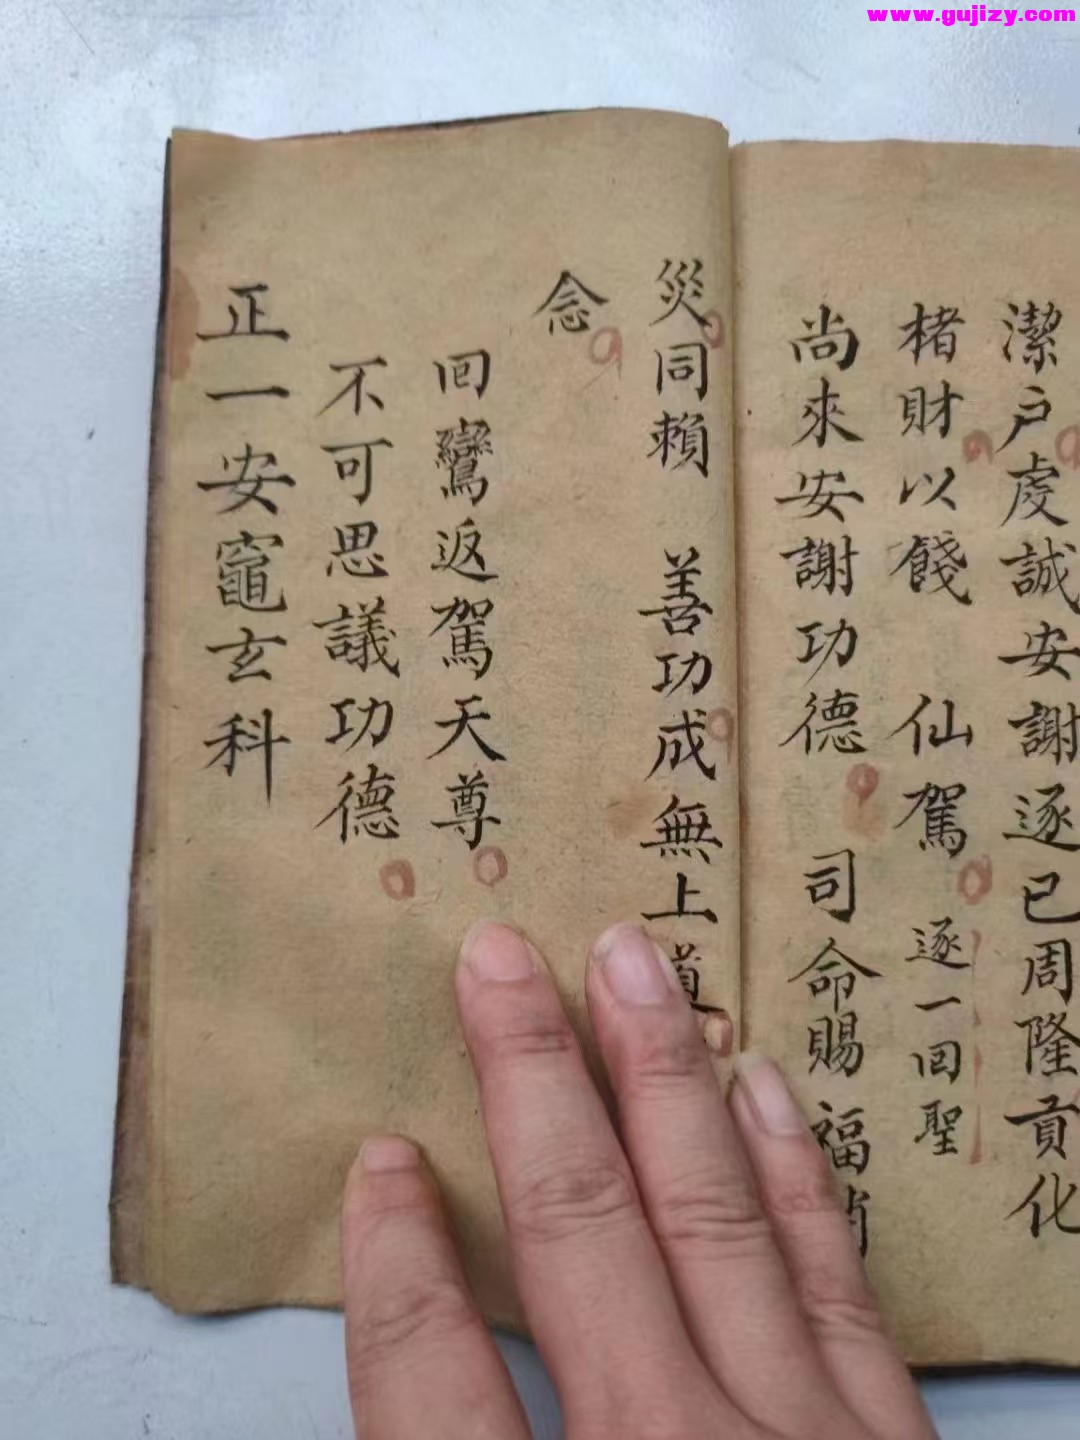 www.gujizy.com
潔户虔誠安謝逐已周隆貢化
楮財以餞 仙駕 逐一回聖
尚來安謝功德 司命賜福
災同賴 善功成無上道
念
回鸞返駕天尊
不可思議功德
正一安竈玄科